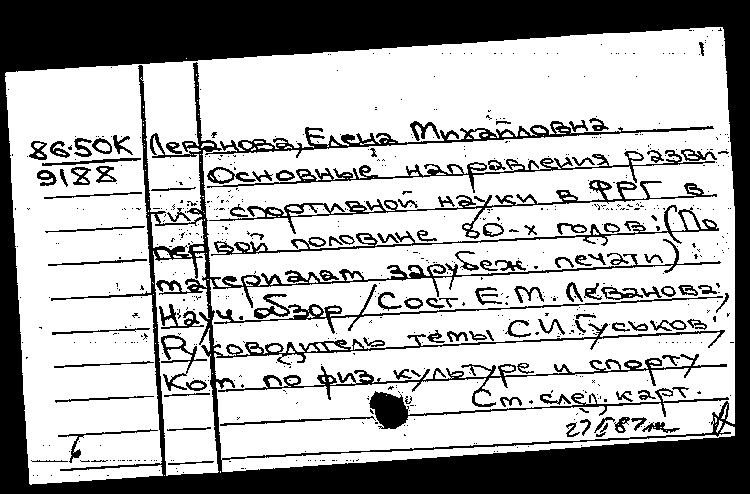 1
86-50К Леванова, Елена Михайловна.
9188 Основные направления разви-
тия спортивной науки в ФРГ в
первой половине 80-х годов: (По
материалам зарубеж. печати):
Науч. обзор / Сост. Е.М. Леванова;
Руководитель темы С.И. Гуськов;
Ком. по физ. культуре и спорту
См. след. карт.
6